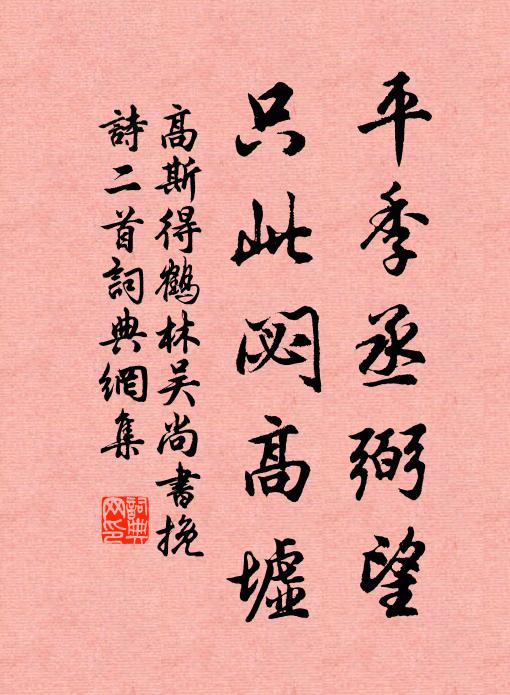 平季丞弼望
只此閟高墟
高斯得鶴林吴尚書挽
詩二首詞典網集
詞典網印